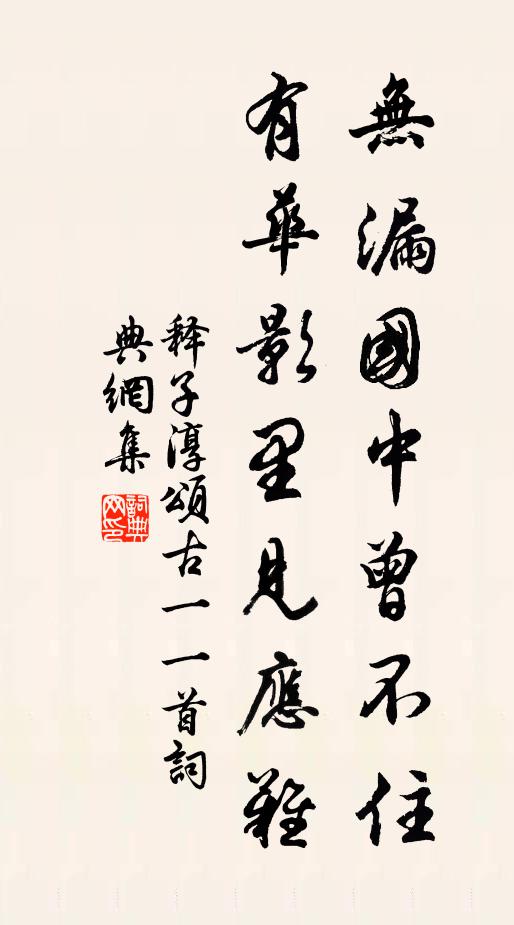 無漏國中曾不住
有華影里見應難
释子淳頌古一一首詞
典網集
詞典
网印